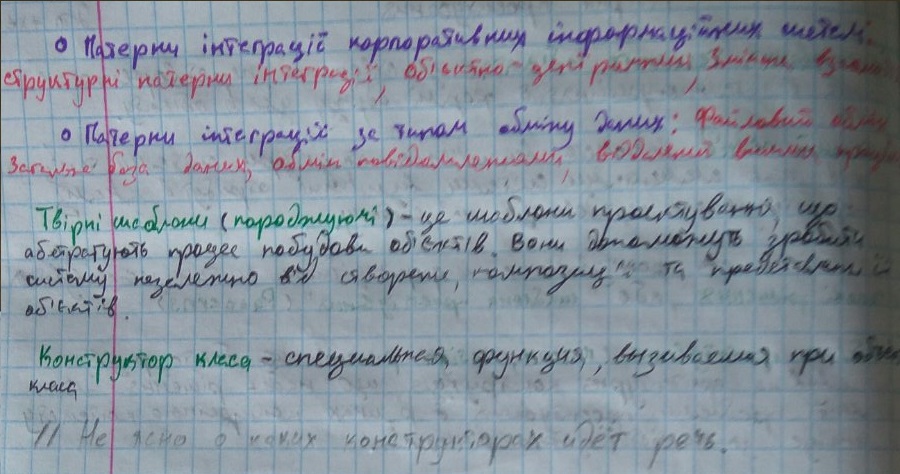 Патерни інтеграції корпоративних інформаційних систем.
структурні патерни інтеграції, об'єктно-
Патерни інтеграції за типом обміну даних: Файловий обмін
Загальна база даних, обмін повідомленнями, віддалений виклик
Твірні шаблони (породжуючі) - це шаблони проєктування, що
абстрагують процес побудови об'єктів. Вони допоможуть зробити
систему незалежно від створення, композиції та представлення її
об'єктів.
Конструктор класа - специальная, функция, вызиваемая при
класа
// Не ясно о каких конструкторах идёт речь.